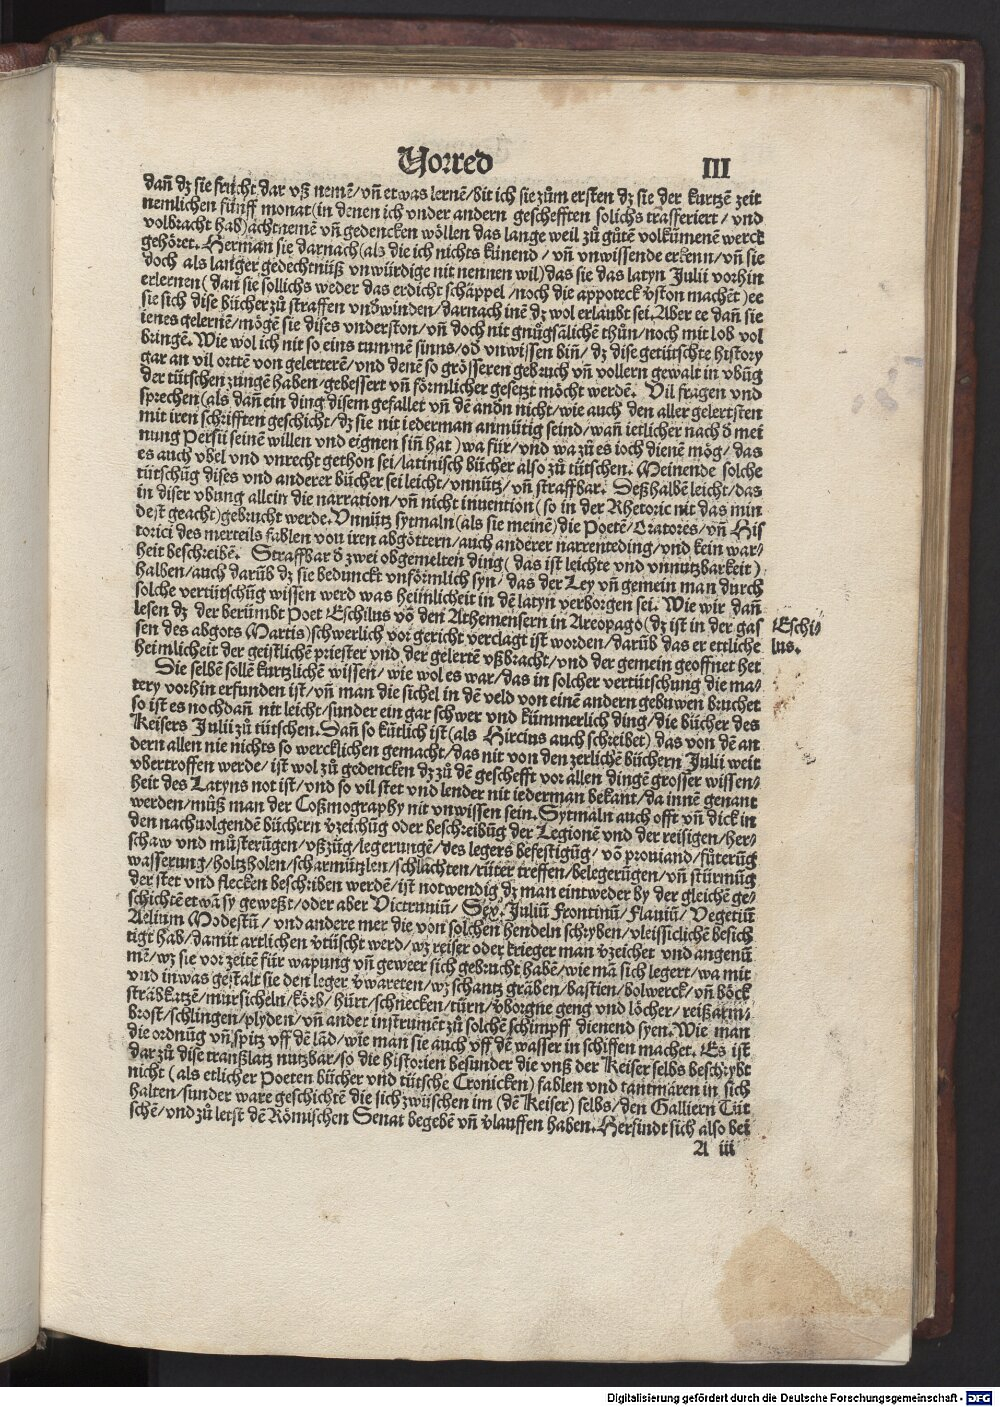 Vorred III
dañ dz sie frucht dar vß nemē/vñ etwas lernē/bit ich sie zům ersten dz sie der kurtzē zeit
nemlichen fünff monat(in denen ich vnder andern geschefften solichs trāsferiert/vnd
volbracht hab)achtnemē vñ gedencken wöllen das lange weil zů gůtē volkūmenē werck
gehöret. Herman sie darnach(als die ich nichts künend/vñ vnwissende erkenn/vñ sie
doch als langer gedechtnüß vnwürdige nit nennen wil)das sie das latyn Julii vorhin
erlernen(dañ sie sollichs weder das erdicht schäppel/noch die appoteck v̄ston machēt)ee
sie sich dise bücher zů straffen vnd̄winden/darnach inē dz wol erlaubt sei. Aber ee dañ sie
ienes gelernē/mögē sie dises vnderston/vñ doch nit gnůgsālichē thůn/noch mit lob vol
bringē. Wie wol ich nit so eins tummē sinns/od̄ vnwissen biñ/dz dise getütschte history
gar an vil orttē von gelerterē/vnd denē so grösseren gebruch vñ vollern gewalt in v̈būg
der tütschen zungē haben/gebessert vñ förmlicher gesetzt möcht werdē. Vil fragen vnd
sprechen(als dañ ein ding disem gefallet vñ dē andn̄ nicht/wie auch den aller gelertsten
mit iren schrifften geschicht/dz sie nit iederman anmütig seind/wañ ietlicher nach d̄ mei
nung Persii seinē willen vnd eignen siñ hat)wa für/vnd wa zů es ioch dienē mög/das
es auch vbel vnd vnrecht gethon sei/latinisch bücher also zů tütschen. Meinende solche
tütschūg dises vnd anderer bücher sei leicht/vnnütz/vñ straffbar. Deßhalbē leicht/das
in diser vbung allein die narration/vñ nicht inuention(so in der Rhetoric nit das min
dest geacht)gebrucht werde. Vnnütz sytmaln(als sie meinē)die Poetē/Oratores/vñ His
torici des merteils fablen von iren abgöttern/auch anderer narrenteding/vnd kein war/
heit beschreibē. Straffbar d̄ zwei obgemelten ding(das ist leichte vnd vnnutzbarkeit)
halben/auch darūb dz sie bedunckt vnförmlich syn/das der Ley vñ gemein man durch
solche vertütschūg wissen werd was heimlicheit in dē latyn verborgen sei. Wie wir dañ
lesen dz der berümbt Poet Eschilus vō den Athemensern in Areopago(dz ist in der gas
sen des abgots Martis)schwerlich vor gericht verclagt ist worden/darūb das er ettliche
heimlicheit der geistlichē priester vnd der gelertē vßbracht/vnd der gemein geoffnet het
Eschi/
lus.
Die selbē sollē kurtzlichē wissen/wie wol es war/das in solcher vertütschung die ma/
tery vorhin erfunden ist/vñ man die sichel in dē veld von einē andern gebuwen bruchet
so ist es nochdañ nit leicht/sunder ein gar schwer vnd kümmerlich ding/die bücher des
Keisers Julii zů tütschen. Dañ so kūtlich ist(als Hircius auch schreibet)das von dē an
dern allen nie nichts so wercklichen gemacht/das nit von den zerlichē büchern Julii weit
vbertroffen werde/ist wol zů gedencken dz zů dē geschefft vor allen dingē grosser wissen/
heit des Latyns not ist/vnd so vil stet vnd lender nit iederman bekant/da innē genant
werden/můß man der Coßmography nit vnwissen sein. Sytmaln auch offt vñ dick in
den nachuolgendē büchern v̄zeichūg oder beschreibūg der Legionē vnd der reisigen/her/
schaw vnd můsterūgen/vßzūg/legerungē/des legers befestigūg/vō prouiand/fůterūg
wasserung/holtzholen/scharmützlen/schlachten/rüter treffen/belegerūgen/vñ stürmūg
der stet vnd flecken beschriben werdē/ist notwendig dz man eintweder by der gleichē ge/
schichtē etwā sy geweßt/oder aber Victruniū/Sex. Juliū Frontinū/Flauiū/Vegetiū
Aelium Modestū/vnd andere mer die von solchen hendeln schryben/vleissiclichē besich
tigt hab/damit artlichen v̄tüscht werd/wz reiser oder krieger man v̄zeichet vnd angenū
mē/wz sie vor zeitē für wapung vñ geweer sich gebrucht habē/wie mā sich legert/wa mit
vnd in was gestalt sie den leger v̄wareten/wz schantz graben/bastien/bolwerck/vñ böck
sträbkatzē/mursicheln/körb/hürt/schnecken/türn/v̄borgne geng vnd löcher/reißarm/
brost/schlingen/plyden/vñ ander instrumēt zů solchē schimpff dienend syen. Wie man
die ordnūg vñ spitz vff dē lād/wie man sie auch vff dē wasser in schiffen machet. Es ist
dar zů dise tranßlatz nutzbar/so die historien besunder die vnß der Keiser selbs beschrybt
nicht(als etlicher Poeten bücher vnd tütsche Cronicken)fablen vnd tantmären in sich
halten/sunder ware geschichtē die sich zwüschen im(dē Keiser)selbs/den Galliern Tüt
schē/vnd zů letst dē Römischen Senat begebē vñ v̄lauffen haben. Herfindt sich also bei
A iii
Digitalisierung gefördert durch die Deutsche Forschungsgemeinschaft - DFG